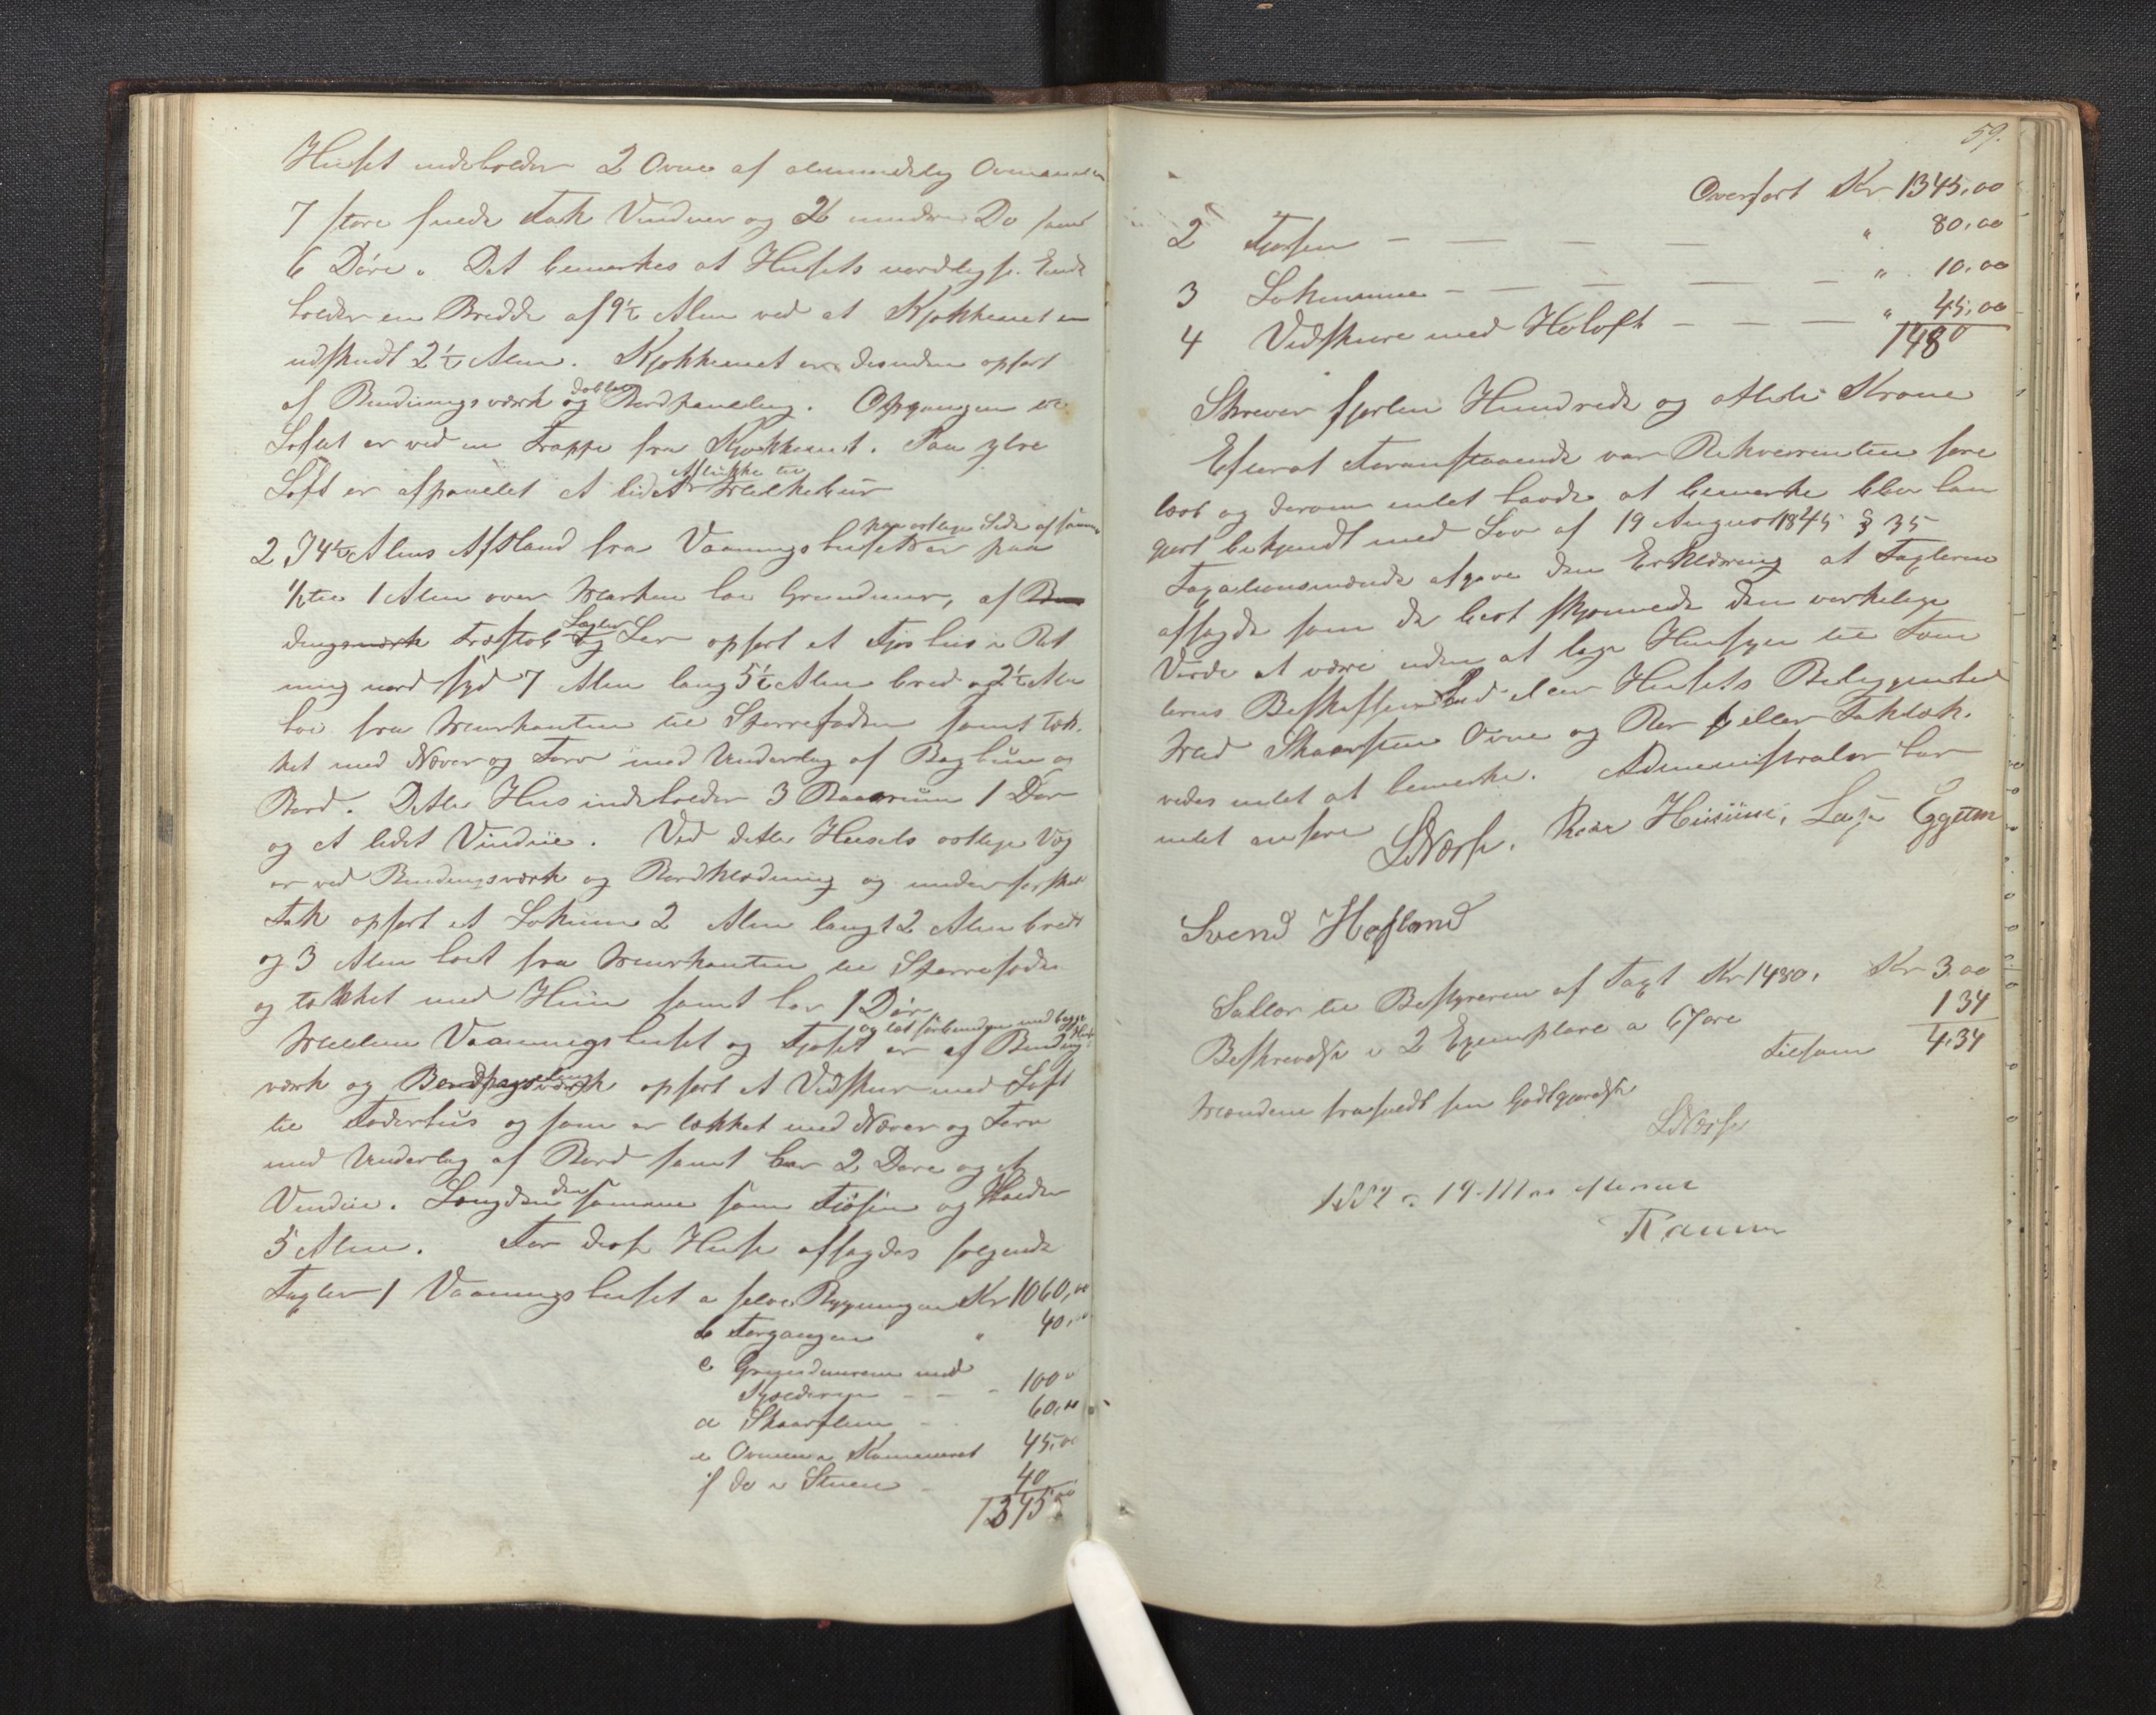 Huset indeholder 2 Ovne af almindelig
7 store fireds Fak Vinduer og 2 mindre Do samt
6 Døre. Det bemærkes at Husets nordligste Ende
holder en Bredde af 9½ Alen ved at Kjøkkenet er
udskudt 2½ Alen. Kjøkkenet er desuden opført
af Bindingsværk og dobbel Bordpaneling. Opgangen til
Loftet er ved en Trappe fra Kjøkkenet. Paa ytre
Loft er afpanelet et lidet Aflukke til Melkebur
2 I 4½ Alens Afstand fra Vaaningshuset paa østlige Side af samme er paa
½ til 1 Alen over Marken høi Grundmur, af
dingsværk Træstol og Lev opført et Fjøshus i Ret
ning nord syd 7 Alen lang 5½ Alen bred og 2½ Alen
høi fra Murkanten til Sperrefoden samt tæk
ket med Næver og Torv med Underlag af Baghun og
Bord. Dette Hus indeholder 3 Baasrum 1 Dør
og et lidet Vindue. Ved dette Husets østlige Væg
er ved Bindingsværk og Bordklædning og under særskilt
Tak opført et Lokum 2 Alen langt 2 Alen bredt
og 3 Alen høit fra Murkanten til Sperrefoden
og tækket med Hun samt har 1 Dør.
Mellem Vaaningshuset og Fjøset og tæt forbunden med begge Huse er af Binding
værk og Bordpaneling opført et Vedskur med Loft
til Foderhus og som er tækket med Næver og Torv
med Underlag af Bord samt har 2 Døre og et
Vindue. Længden den samme som Fjøsen og Høiden
5 Alen. For disse Huse afsagdes følgende
Taxter 1 Vaaningshuset a selve Bygningen Kr 1060,00
b Forgangen " 40,00
c Grundmuren med
Kjælderen — — 100 "
d Skorsten — 60,00
e Ovnen i Kammeret 45,00
f do i Stuen — 40
1345,00
59.
Overført Kr 1345,00
2 Fjøsen — — — — " 80,00
3 Lokumme — — — — — " 10,00
4 Vedskure med Høloft — — — " 45,00
1480
Skriver fjorten Hundrede og otteti Krone
Efterat Foranstaaende var Rekvirenten fore
læst og derom intet havde at bemerke blev han
gjort bekjendt med Lov af 19 August 1845 § 35
Taxationsmændene afgave den Erklæring at Taxterne
afsagde som de bedst skjønnede den verkelige
Værdi at være uden at tage Hensyn til Tom
terns Beskaffenhed eller Husets Beliggenhed
Med Skorsten Ovne og Rør eller Taktæk.
vedes intet at bemerke. Administrator har
intet anføre LNæss. Roar Husum, Lasse Eggum
Svend Hofland
Sallær til Bestyreren af Taxt Kr 1480, Kr 3.00
Beskrivelse i 2 Exemplare a 67 øre 1 34
Tilsam 4,34
Mændene frafaldt sin Godtgjørelse
LNæss
1882 19-111